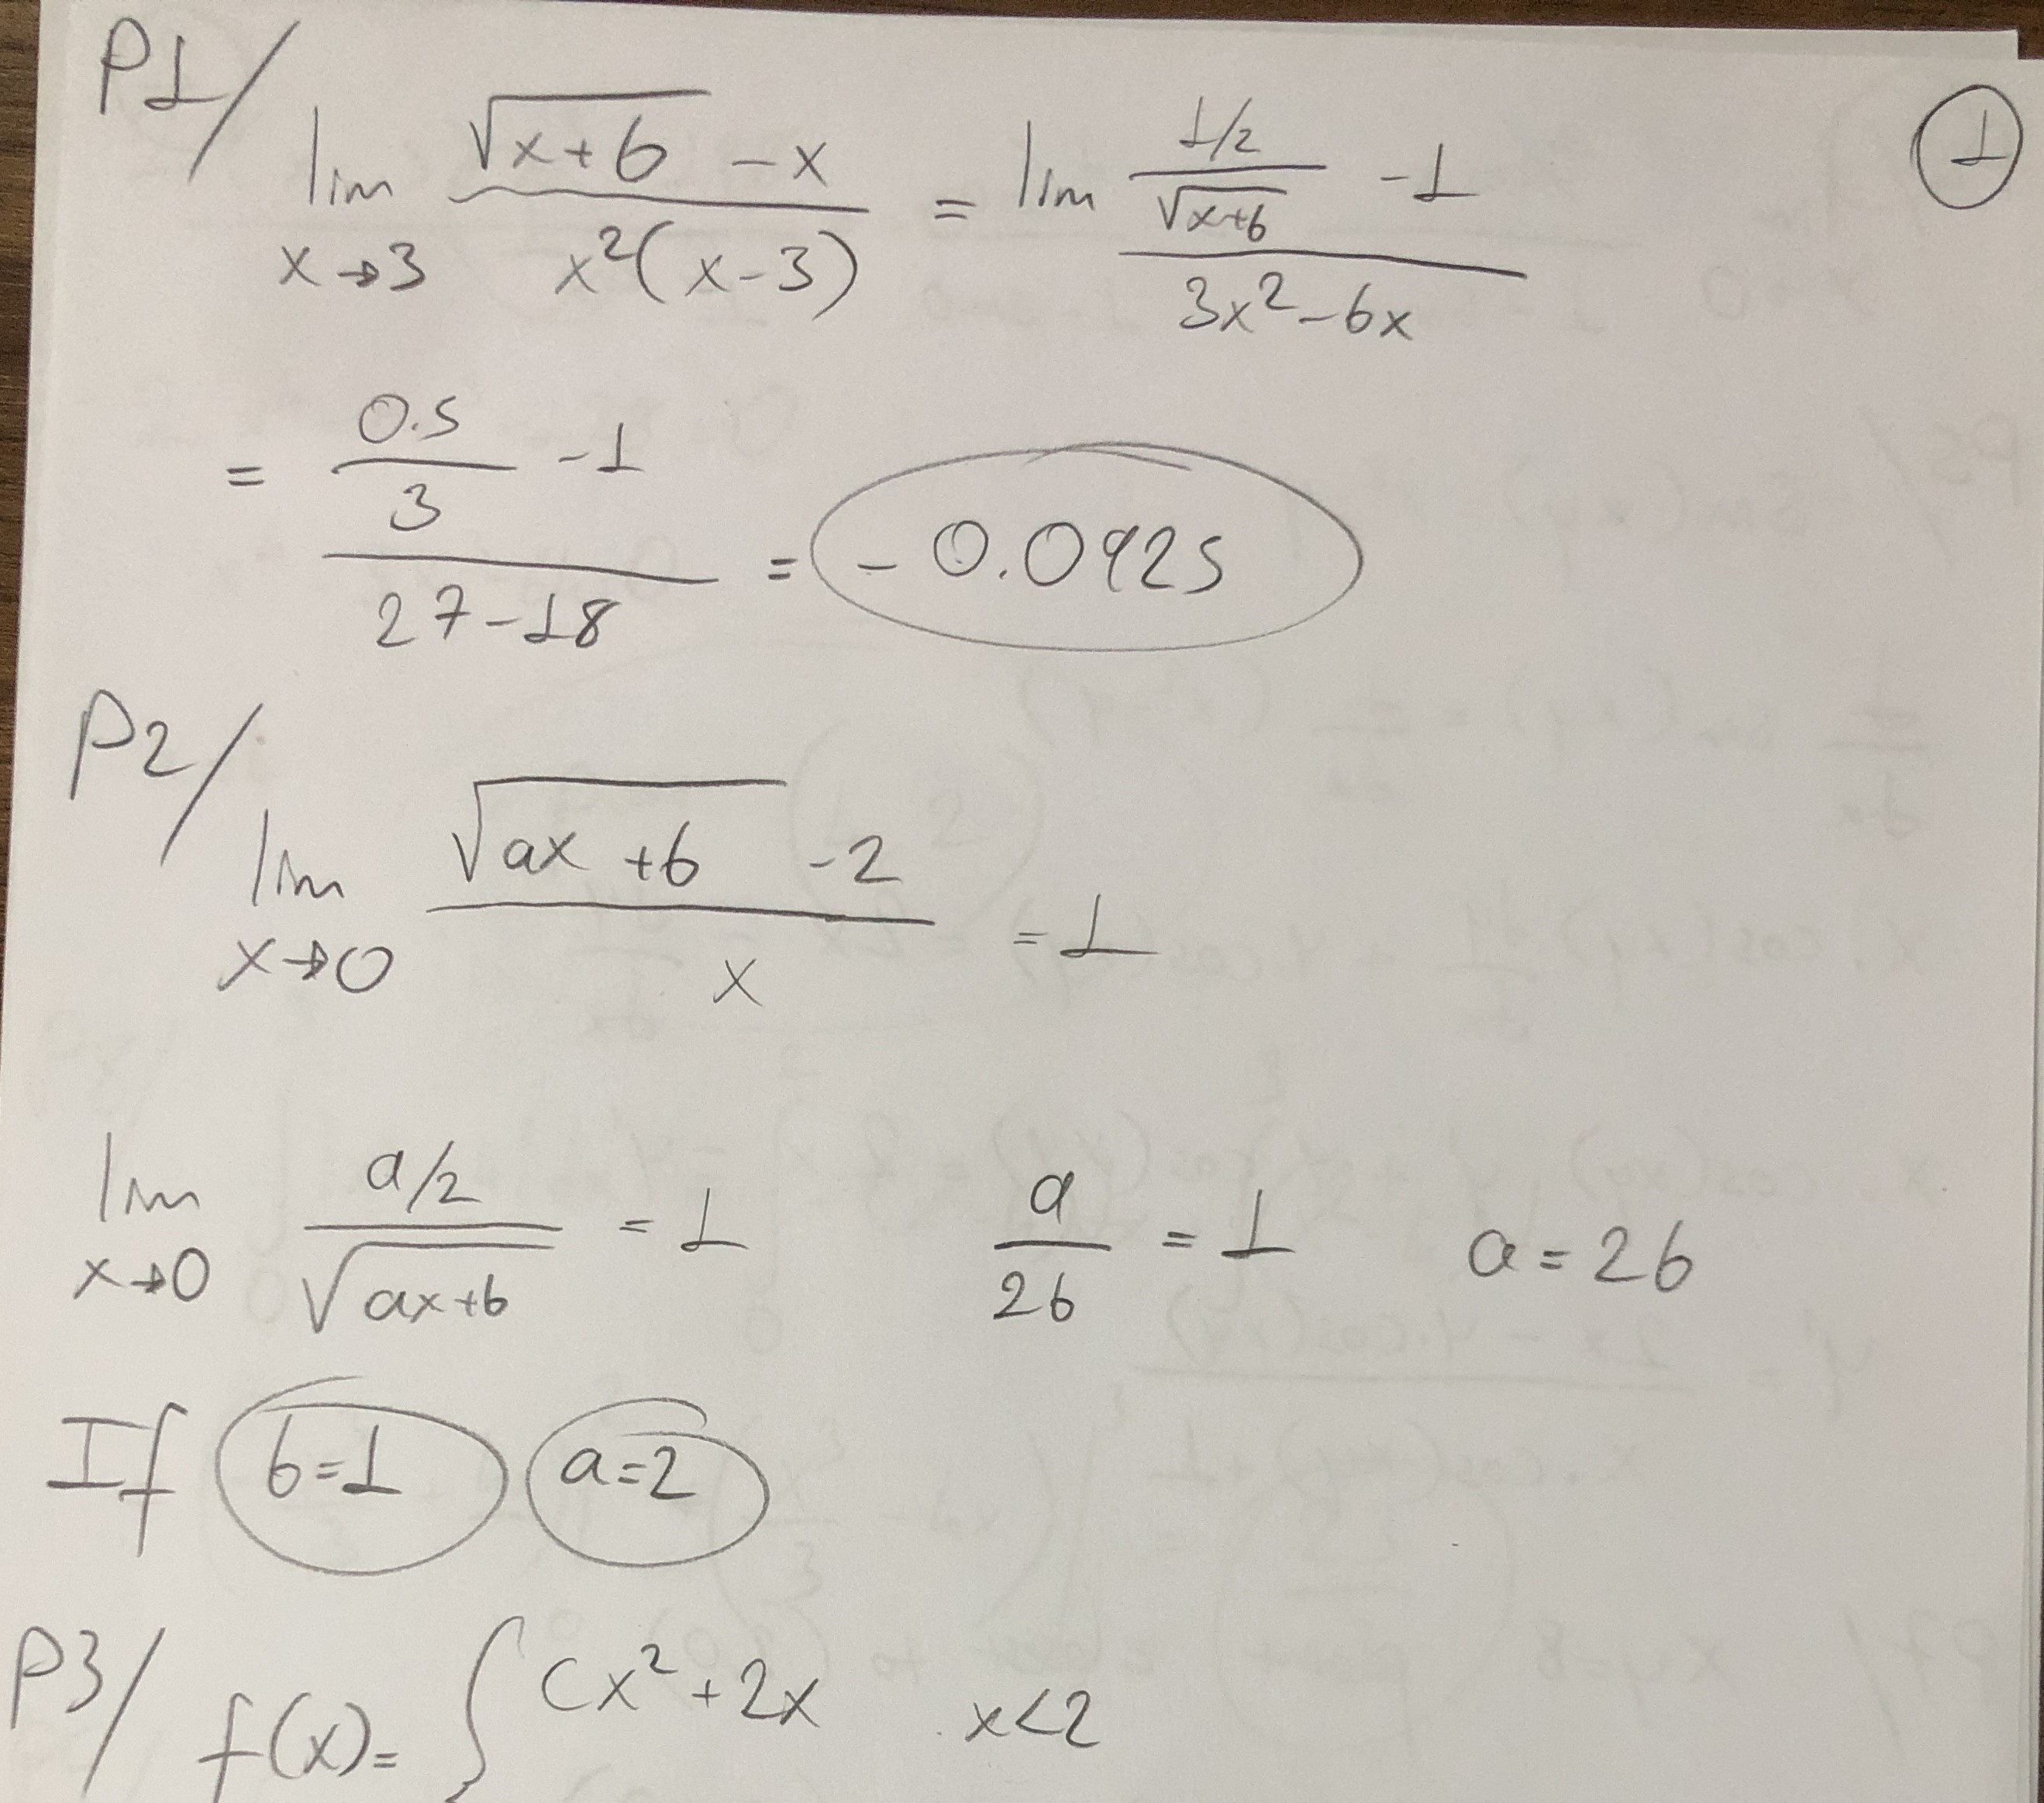 P1/ lim x→3 (√(x+6) - x)/(x²(x-3)) = lim ((1/2)/√(x+6) - 1)/(3x²-6x) ①
= (0.5/3 - 1)/(27-18) = -0.0925
P2/ lim x→0 (√(ax+b) - 2)/x = 1
lim x→0 (a/2)/√(ax+b) = 1 a/2b = 1 a=2b
If b=1 a=2
P3/ f(x)= { Cx²+2x x<2